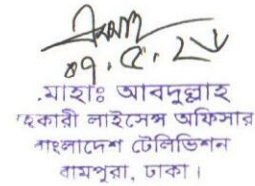 ০৭.৫.২
.মাহাঃ আবদুল্লাহ
হকারী লাইসেন্স অফিসার
বাংলাদেশ টেলিভিশন
রামপুরা, ঢাকা।